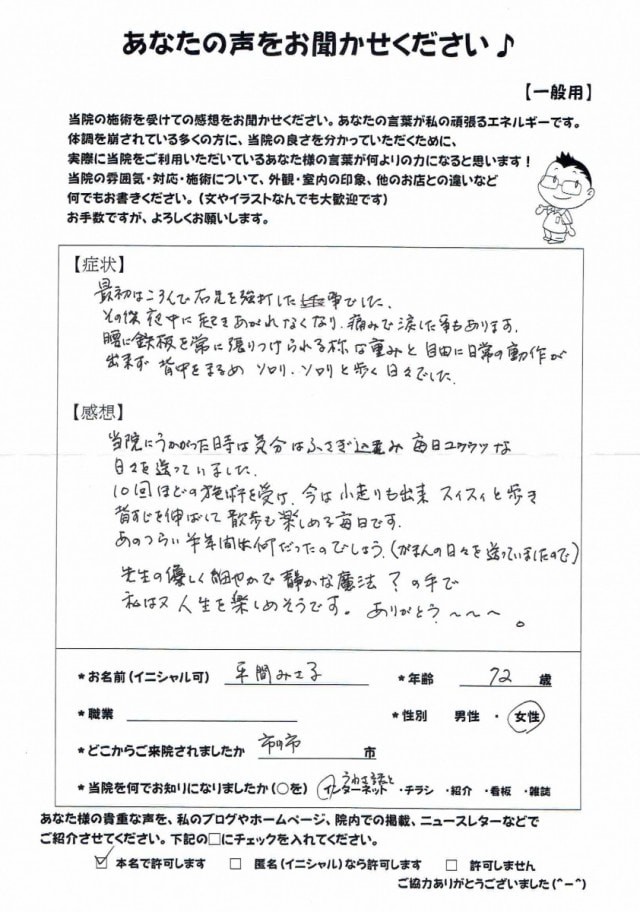 あなたの声をお聞かせください♪
【一般用】
当院の施術を受けての感想をお聞かせください。あなたの言葉が私の頑張るエネルギーです。
体調を崩されている多くの方に、当院の良さを分かっていただくために、
実際に当院をご利用いただいているあなた様の言葉が何よりの力になると思います!
当院の雰囲気・対応・施術について、外観・室内の印象、他のお店との違いなど
何でもお書きください。(文やイラストなんでも大歓迎です)
お手数ですが、よろしくお願いします。
【症状】
最初はころんで右足を強打した事でした。
その後夜中に起きあがれなくなり、痛みで涙した事もあります。
腰に鉄板を常に張りつけられる様な重みと自由に日常の動作が
出来ず 背中をまるめ ソロリ、ソロリと歩く日々でした。
【感想】
当院にうかがった時は気分はふさぎ込み 毎日ユウウツな
日々を送っていました。
10回ほどの施術を受け、今は小走りも出来 スイスイと歩き
背すじを伸ばして散歩も楽しめる毎日です。
あのつらい半年間は何だったのでしょう。(がまんの日々を送っていましたので)
先生の優しく細やかで静かな魔法?の手で
私は又人生を楽しめそうです。ありがとう〜〜〜。
*お名前(イニシャル可) 平間みさ子 *年齢 72 歳
*職業 *性別 男性 ・ 女性
*どこからご来院されましたか 市の市
*当院を何でお知りになりましたか(○を) インターネット ・チラシ ・紹介 ・看板 ・雑誌
あなた様の貴重な声を、私のブログやホームページ、院内での掲載、ニュースレターなどで
ご紹介させてください。下記の□にチェックを入れてください。
☑ 本名で許可します □ 匿名(イニシャル)なら許可します □ 許可しません
ご協力ありがとうございました(^-^)